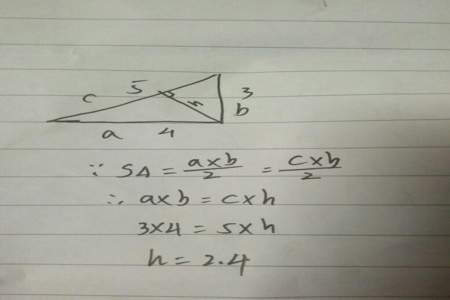 5 3
c h b
a 4
∵ SΔ = a×b/2 = c×h/2
∴ a×b = c×h
3×4 = 5×h
h = 2.4